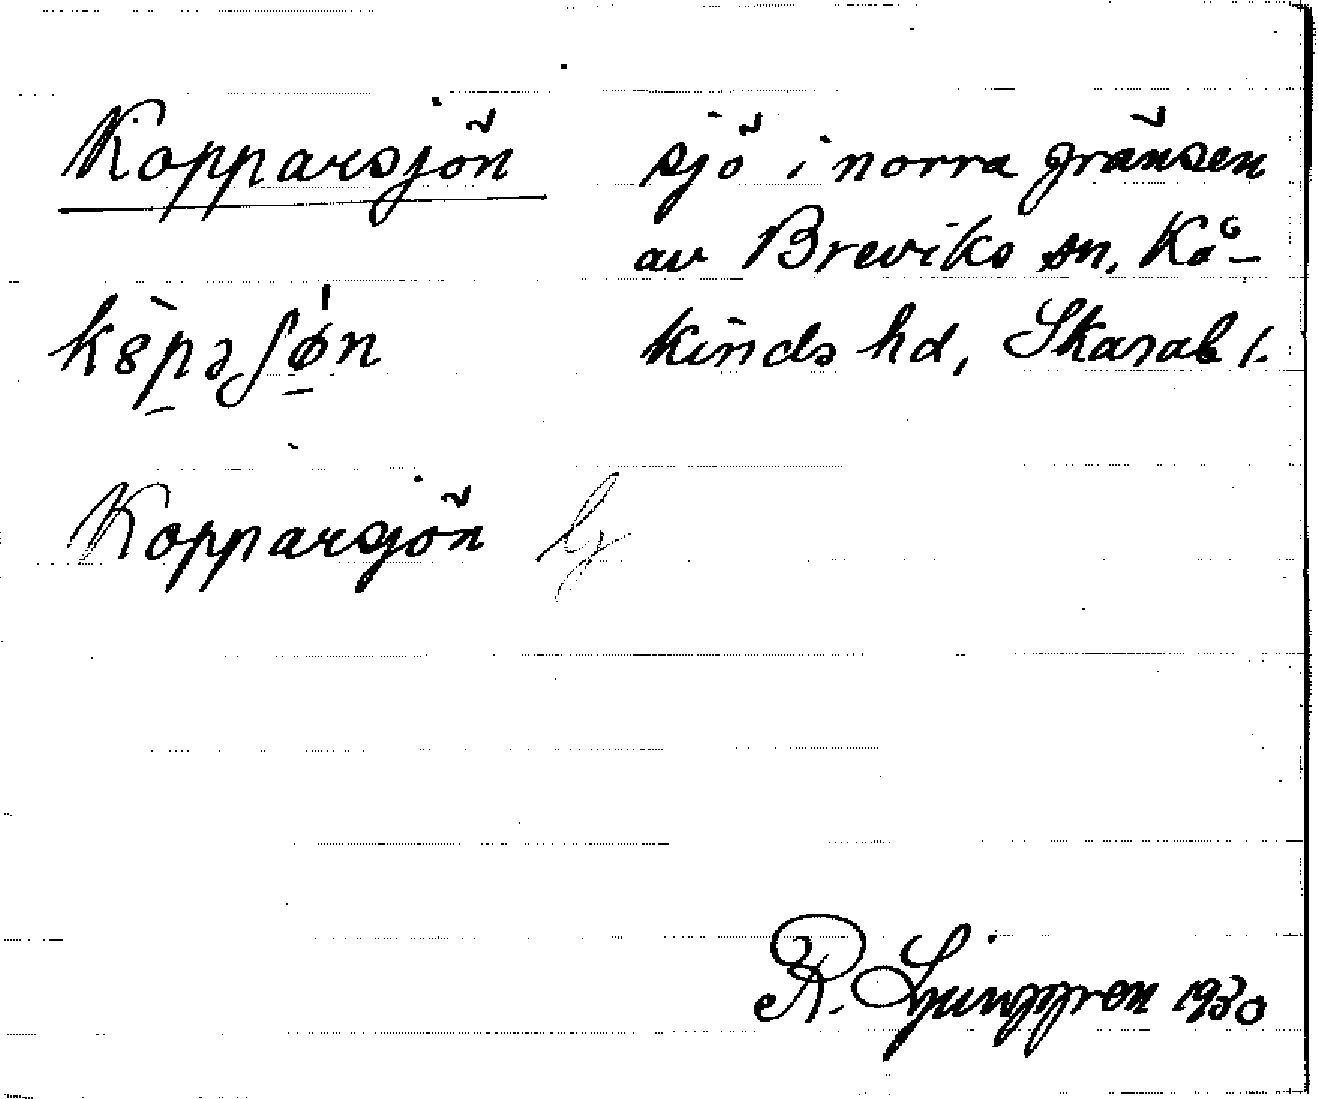 Kopparsjön
sjö i norra gränsen
av Breviks sn, Kå-
kinds hd, Skarab l.
Kopparsjön
R. Ljunggren 1930